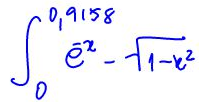 ∫₀^0,9158 e^-x - √(1-x²)